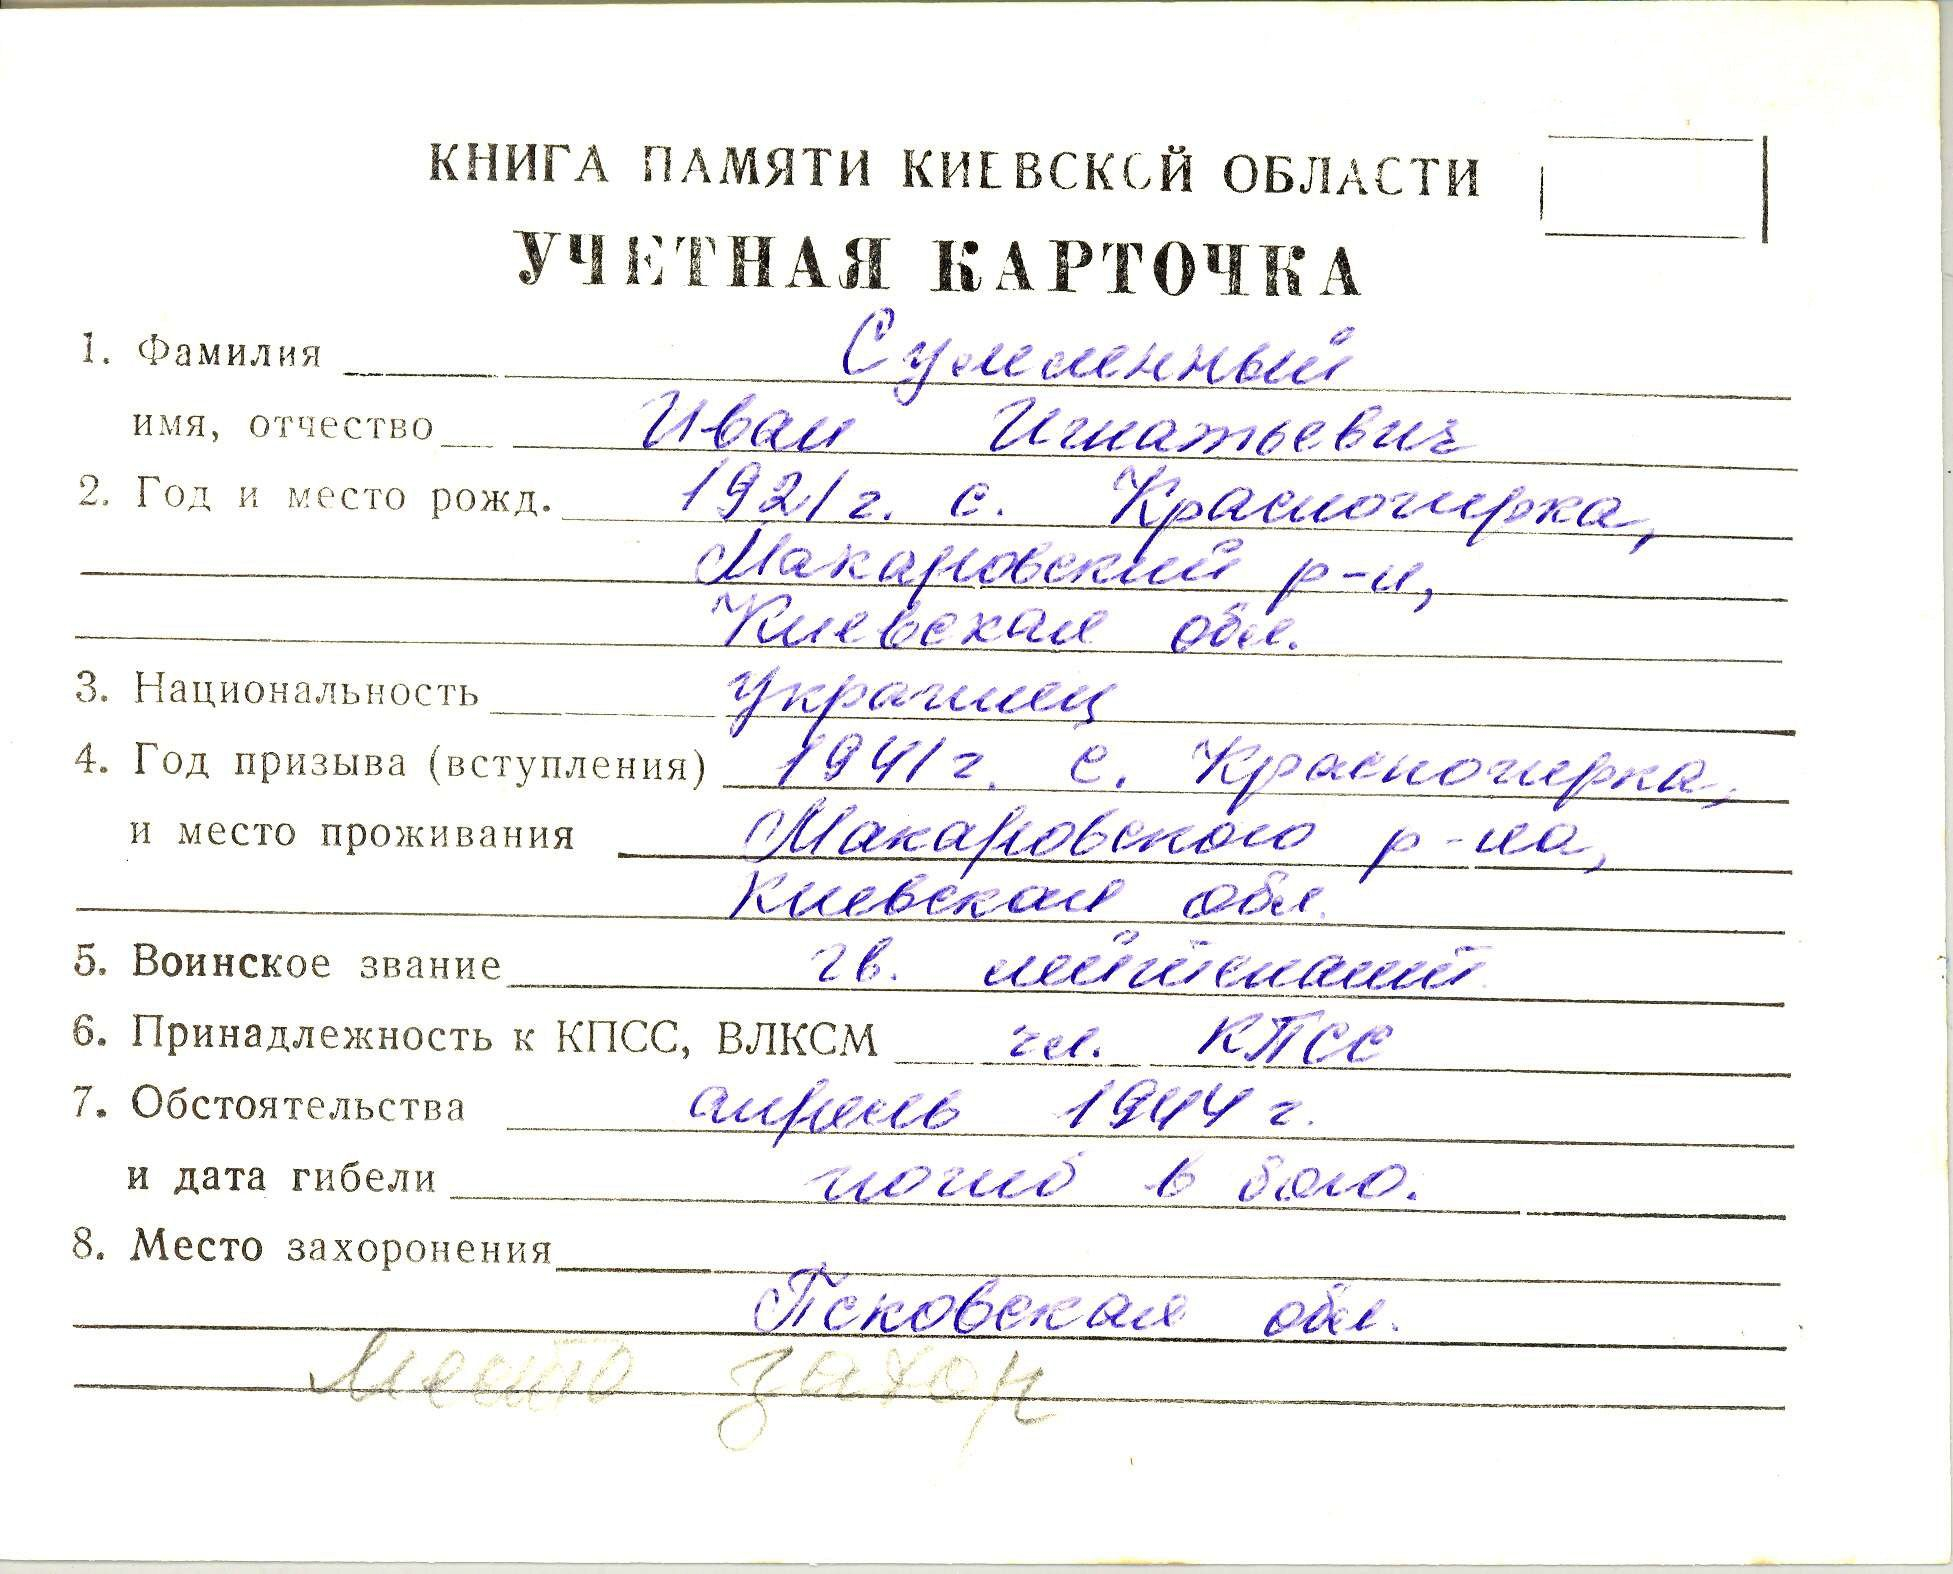 КНИГА ПАМЯТИ КИЕВСКОЙ ОБЛАСТИ
УЧЕТНАЯ КАРТОЧКА
1. Фамилия Сумленный
имя, отчество Иван Игнатьевич
2. Год и место рожд. 1921 г. с. Красногирка,
Макаровский р-н,
Киевская обл.
3. Национальность украинец
4. Год призыва (вступления) 1941 г. с. Красногирка,
и место проживания Макаровского р-на,
Киевская обл.
5. Воинское звание гв. лейтенант
6. Принадлежность к КПСС, ВЛКСМ чл. КПСС
7. Обстоятельства апрель 1944 г.
и дата гибели погиб в бою.
8. Место захоронения
Псковская обл.
Место захор